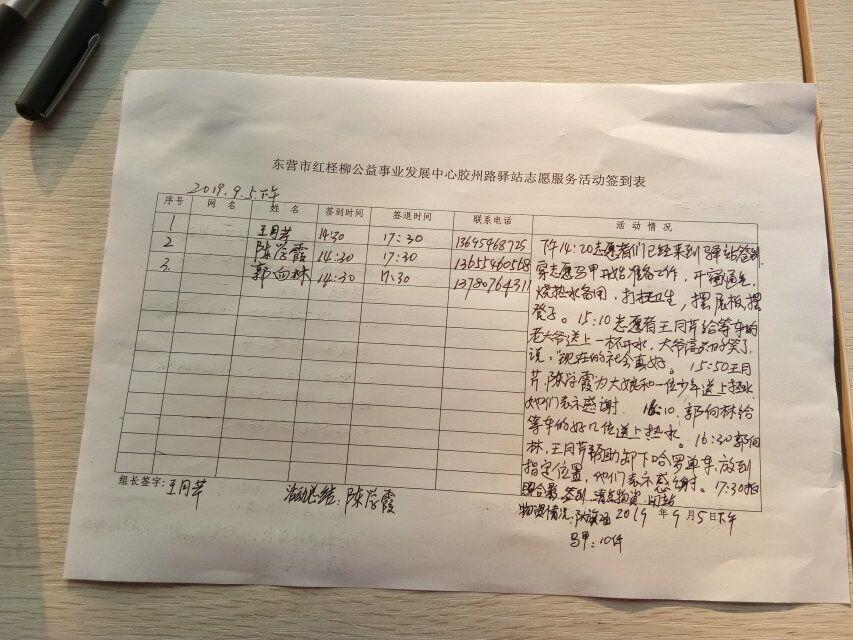 东营市红柽柳公益事业发展中心胶州路驿站志愿服务活动签到表
2019.9.5下午
序号 网名 姓名 签到时间 签退时间 联系电话 活动情况
1 王月芹 14:30 17:30 13695468725
2 陈学霞 14:30 17:30 13655460568
3. 郭向林 14:30 17:30 13780764311
下午14:20志愿者们已经来到驿站签到,
穿志愿马甲开始准备工作,开窗通气,
烧热水备用,打扫卫生,摆展板,摆
凳子。15:10志愿者王月芹给等车的
老大爷送上一杯开水,大爷高兴的笑了
说:"现在的社会真好。15:50王月
芹,陈学霞为大娘和一位少年送上热水
她们表示感谢. 16:10.郭向林给
等车的好几位送上热水。16:30郭向
林,王月芹帮助卸下哈罗单车,放到
指定位置,他们表示感谢。17:30拍
照合影,签到,清点物资,闭站
物资情况:队旗2面 2019年9月5日下午
马甲:10件
组长签字:王月芹 活动总结:陈学霞